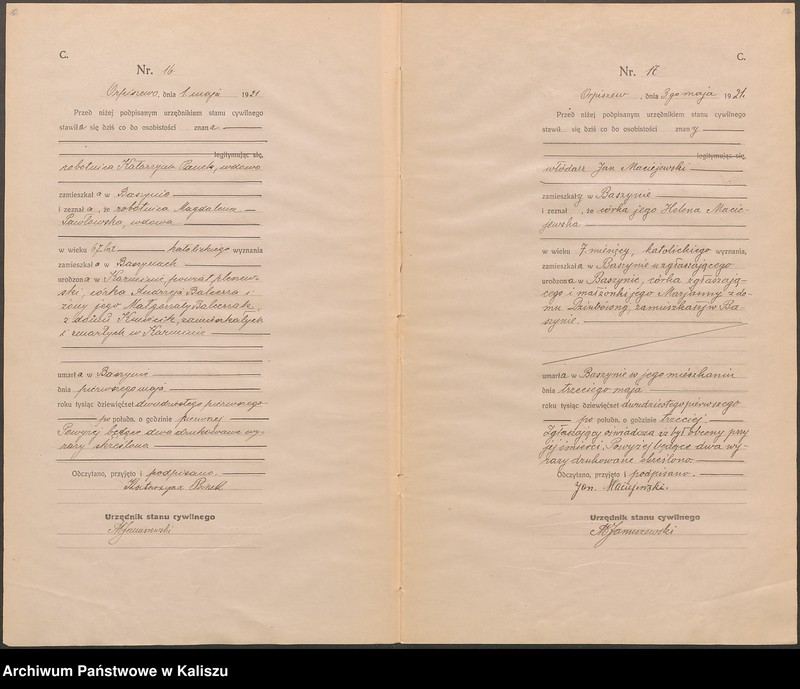 C.
Nr. 16
Orpiszewo, dnia 1 maja 1921
Przed niżej podpisanym urzędnikiem stanu cywilnego
stawiła się dziś co do osobistości znana
legitymując się,
robotnica Katarzyna wdowa
zamieszkała w Baszynie
i zeznała, że robotnica Magdalena
Pawłowska, wdowa
w wieku 67 lat katolickiego wyznania
zamieszkała w Baszynach
urodzona w Karminie, powiat pleszew-
ski, córka Andrzeja Balcera i
żony jego Małgorzaty Balcerak,
z domu zamieszkałych
i zmarłych w Karminie
umarła w Baszynie
dnia pierwszego maja
roku tysiąc dziewięćset dwudziestego pierwszego
po połudn. o godzinie pierwszej
Powyżej będące dwa drukowane wy-
razy skreślono
Odczytano, przyjęto i podpisano.
Katarzyna
Urzędnik stanu cywilnego
Januszewski
C.
Nr. 17
Orpiszew, dnia 3go maja 1921.
Przed niżej podpisanym urzędnikiem stanu cywilnego
stawił się dziś co do osobistości znany
legitymując się,
włódarz Jan Maciejewski
zamieszkały w Baszynie
i zeznał, że córka jego Helena Macie-
jewska
w wieku 7 miesięcy, katolickiego wyznania,
zamieszkała w Baszynie u zgłaszającego
urodzona w Baszynie, córka zgłaszają-
cego i małżonki jego Marjanny z do-
mu zamieszkałej w Ba-
szynie.
umarła w Baszynie w jego mieszkaniu
dnia trzeciego maja
roku tysiąc dziewięćset dwudziestego pierwszego
po połudn. o godzinie trzeciej.
Zgłaszający oświadcza iż był obecny przy
jej śmierci. Powyżej będące dwa wy-
razy drukowane skreślono.
Odczytano, przyjęto i podpisano.
Jan Maciejewski.
Urzędnik stanu cywilnego
Januszewski
Archiwum Państwowe w Kaliszu